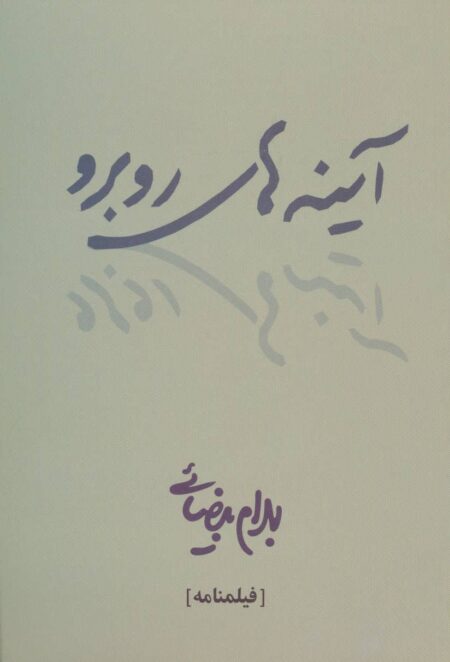 آینه های روبرو
بهرام بیضائی
[فیلمنامه]